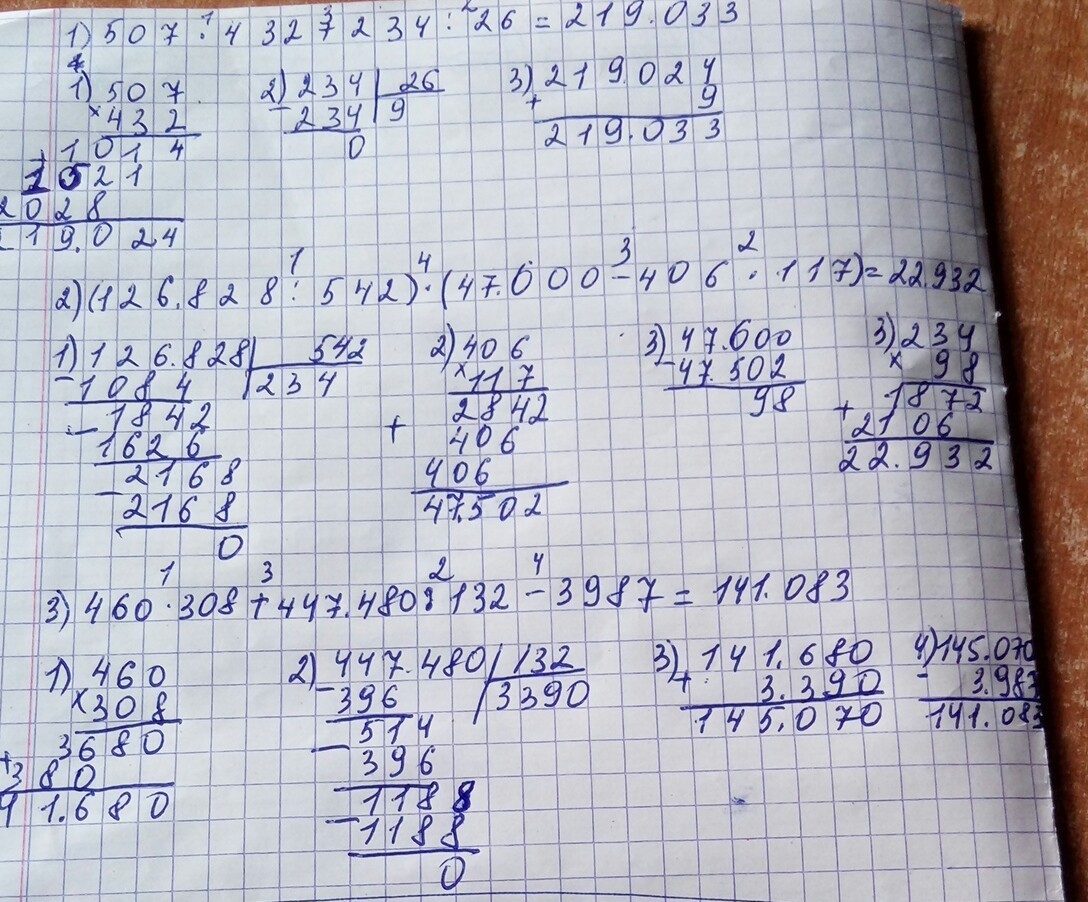 1) 507 · 432 + 234 : 26 = 219.033
1) 507 2) 234 | 26 3) 219.024
× 432 - 234 | 9 + 9
1014 0 219.033
+ 1521
2028
219.024
2) (126.828 : 542) · (47.600 - 406 · 117) = 22.932
1) 126.828 | 542 2) 406 3) 47.600 3) 234
- 1084 | 234 × 117 - 47.502 × 98
- 1842 2842 98 + 1872
1626 + 406 2106
- 2168 406 22.932
2168 47.502
0
3) 460 · 308 + 447.480 : 132 - 3987 = 141.083
1) 460 2) 447.480 | 132 3) 141.680 4) 145.070
× 308 - 396 | 3390 + 3.390 - 3.987
3680 514 145.070 141.083
+ 380 - 396
41.680 1188
- 1188
0